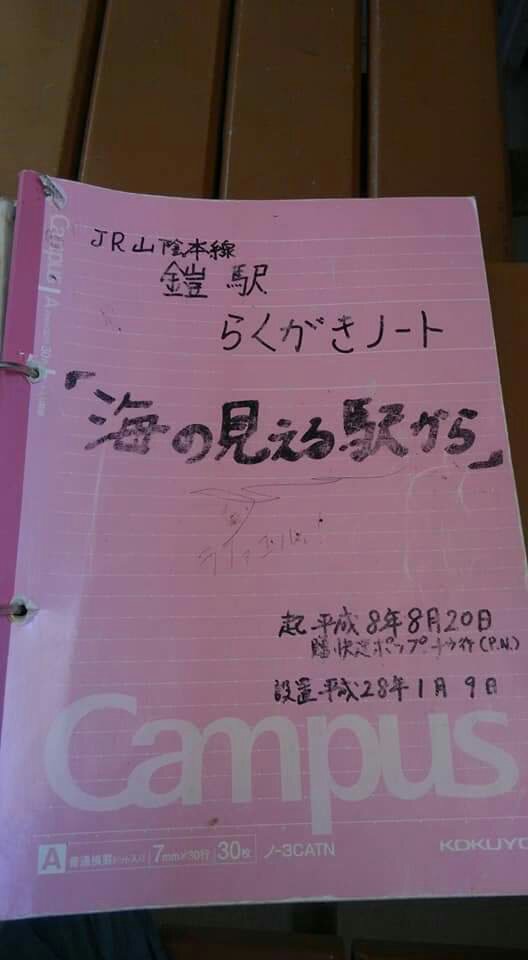 Campus
JR山陰本線
鎧駅
らくがきノート
「海の見える駅から」
起 平成8年8月20日
(P.N.)
設置平成28年1月9日
Campus
A 普通横罫 ドット入り 7mm×30行 30枚 ノ-3CATN KOKUYO